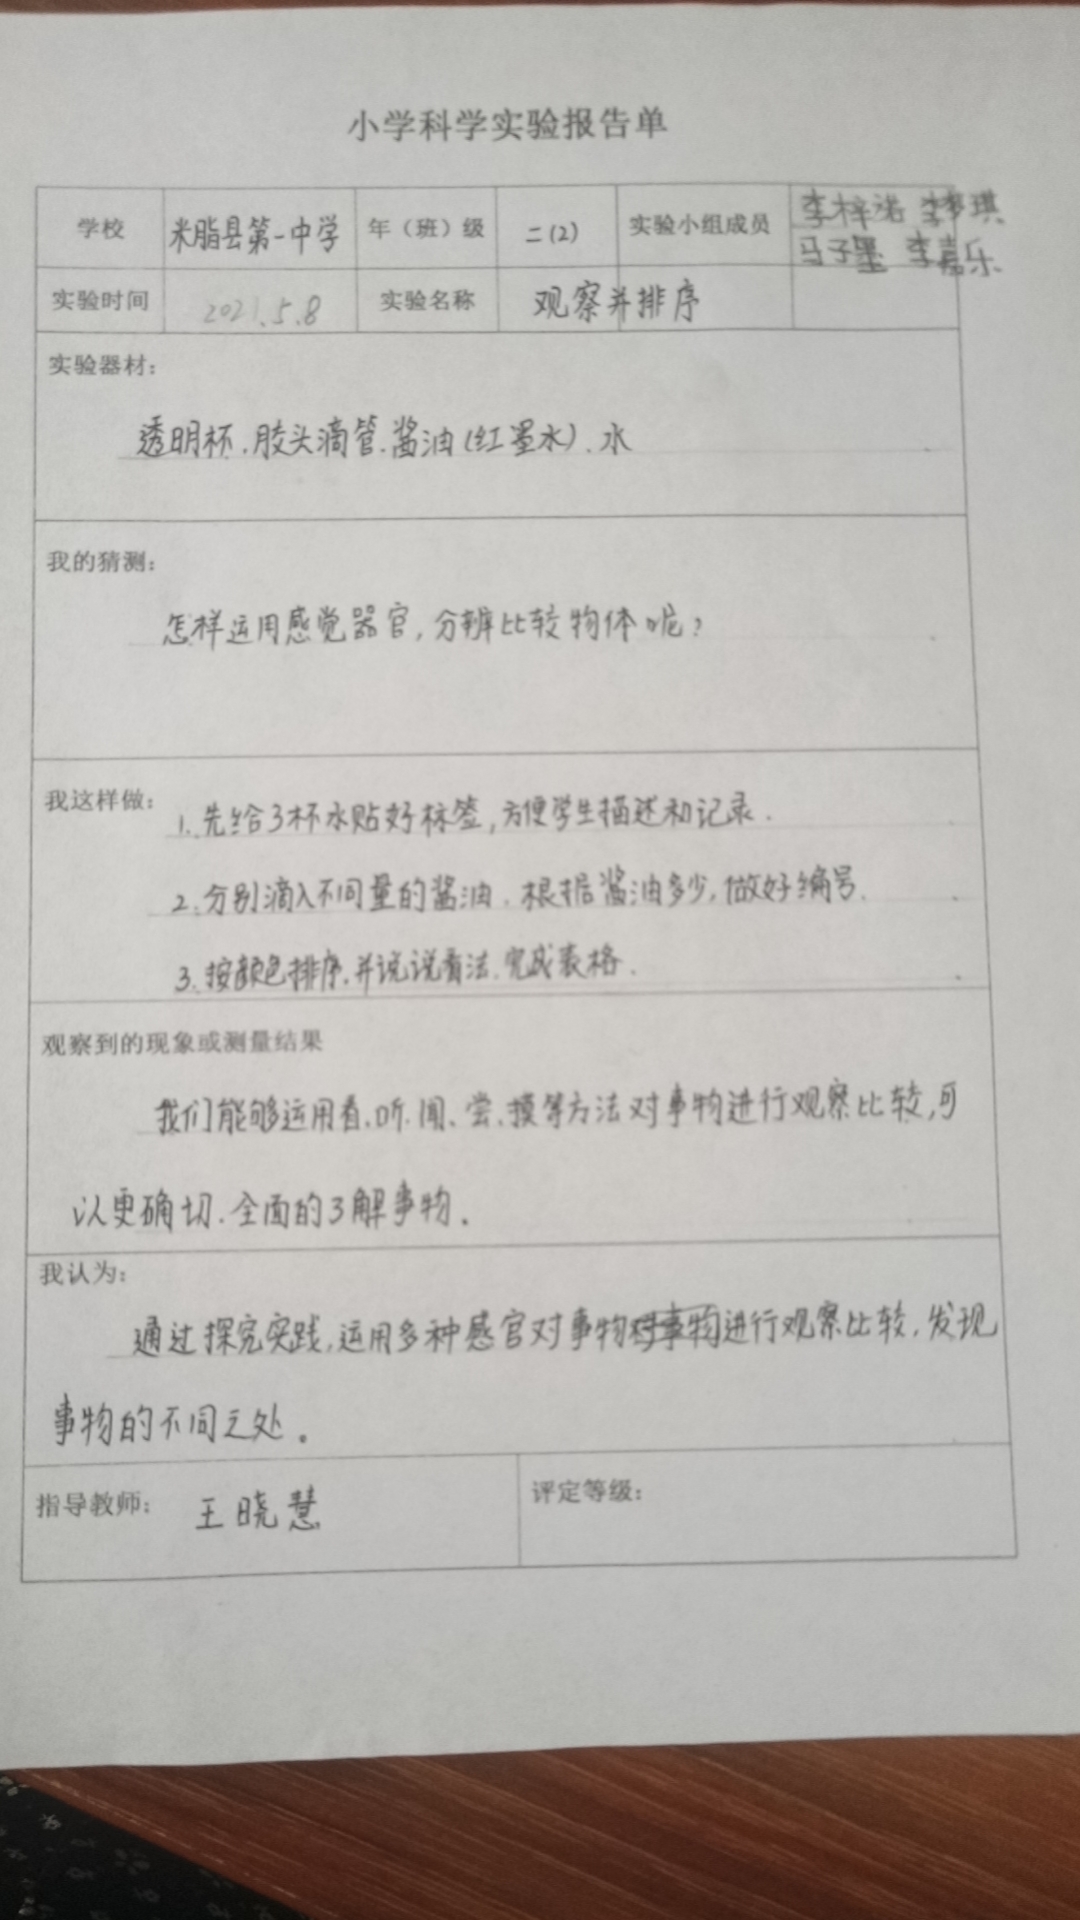 小学科学实验报告单
学校 米脂县第一中学 年（班）级 二(2) 实验小组成员 李梓诺 李梦琪
马子墨 李嘉乐
实验时间 2021.5.8 实验名称 观察并排序
实验器材：
透明杯、胶头滴管、酱油(红墨水)、水
我的猜测：
怎样运用感觉器官,分辨比较物体呢?
我这样做：
1.先给3杯水贴好标签,方便学生描述和记录.
2.分别滴入不同量的酱油,根据酱油多少,做好编号.
3.按颜色排序,并说说看法.完成表格.
观察到的现象或测量结果
我们能够运用看、听、闻、尝、摸等方法对事物进行观察比较,可
以更确切、全面的了解事物。
我认为：
通过探究实践,运用多种感官对事物进行观察比较,发现
事物的不同之处。
指导教师： 王晓慧 评定等级：